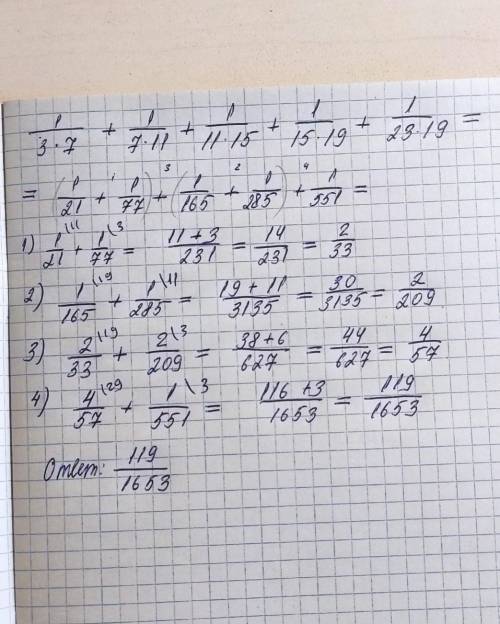 1/(3·7) + 1/(7·11) + 1/(11·15) + 1/(15·19) + 1/(23·19) =
= (1/21 +¹ 1/77) +³ (1/165 +² 1/285) +⁴ 1/551 =
1) 1/21 \11 + 1/77 \3 = (11+3)/231 = 14/231 = 2/33
2) 1/165 \19 + 1/285 \11 = (19+11)/3135 = 30/3135 = 2/209
3) 2/33 \19 + 2/209 \3 = (38+6)/627 = 44/627 = 4/57
4) 4/57 \29 + 1/551 \3 = (116+3)/1653 = 119/1653
Ответ: 119/1653